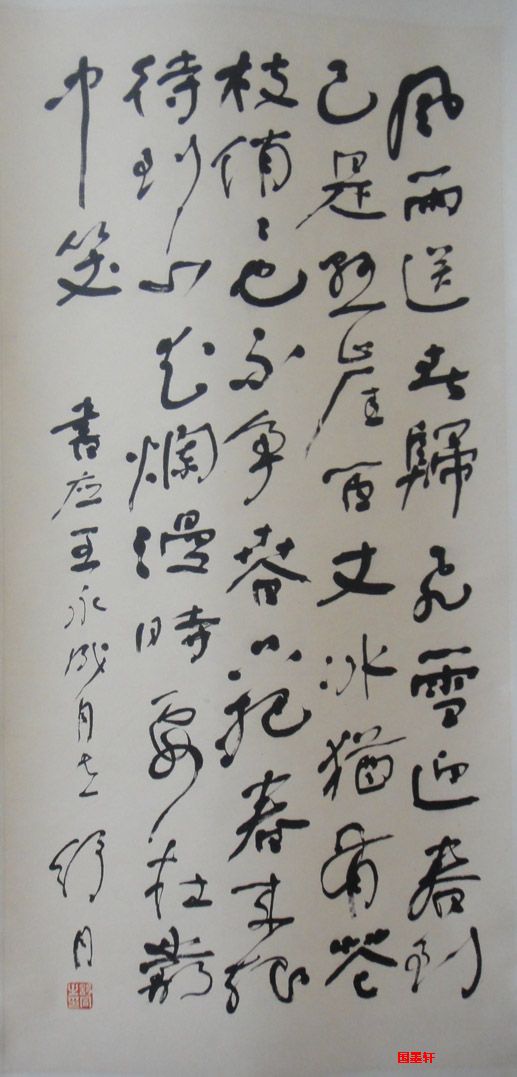 風雨送春歸飛雪迎春到
已是懸崖百丈冰猶有花
枝俏〻也不争春只把春来報
待到山花爛漫時她在叢
中笑
書应王永成同志 舒同
国墨轩